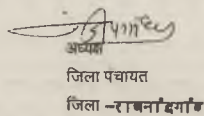 अध्यक्ष
जिला पंचायत
जिला -राजनांदगांव